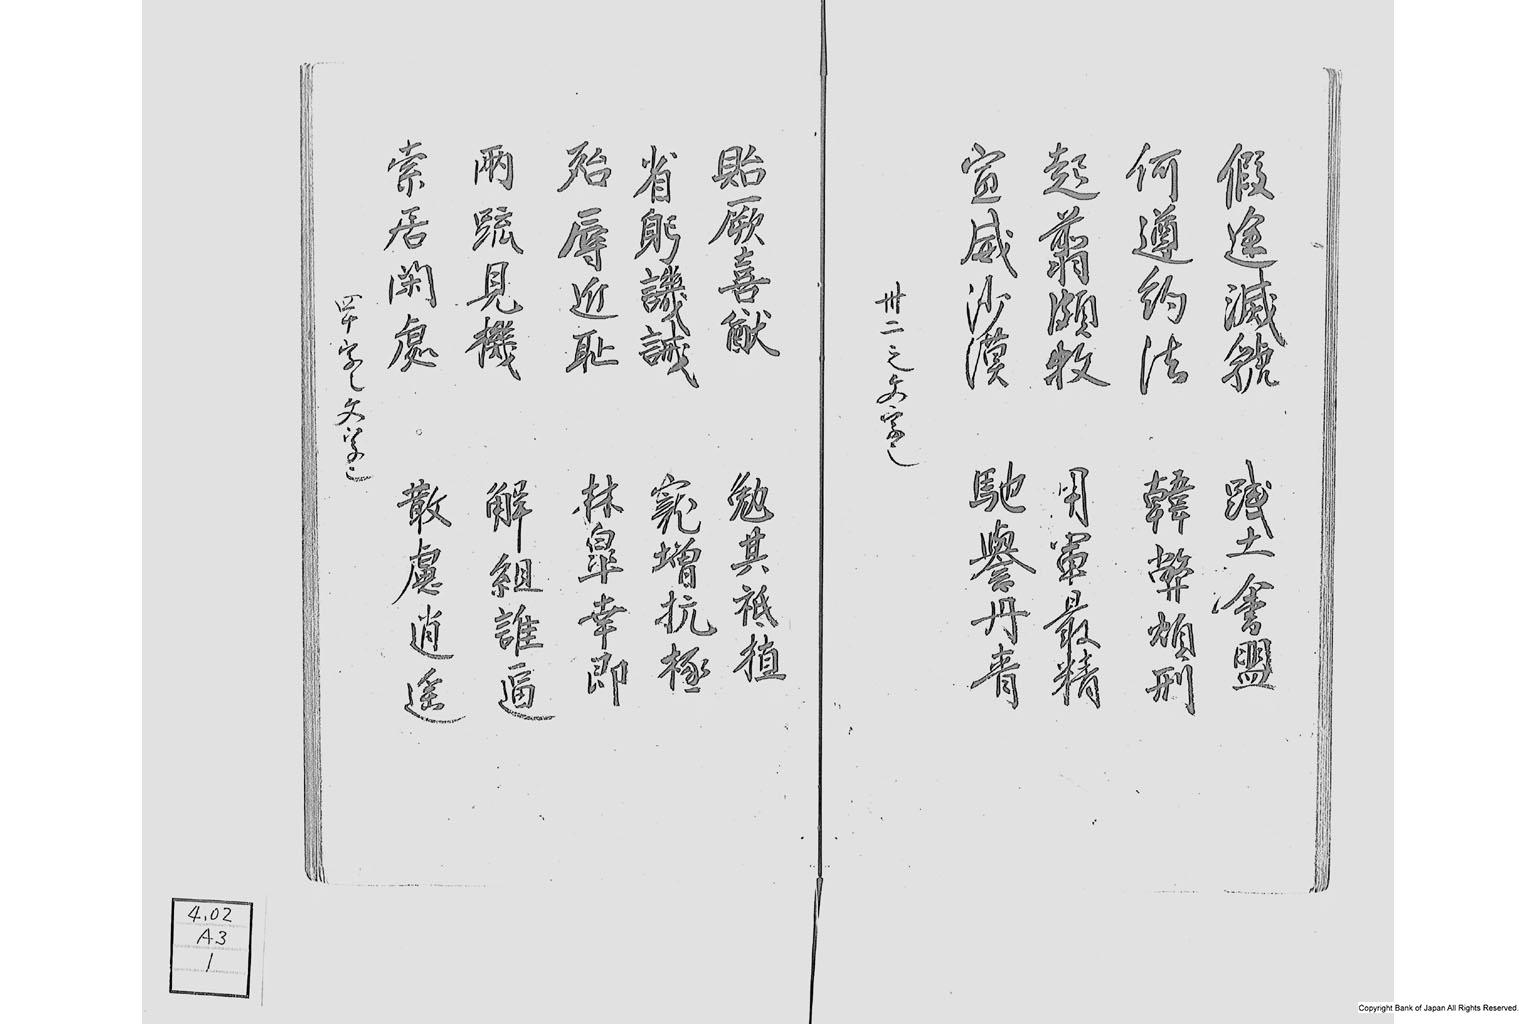 假途滅虢 踐土會盟
何遵約法 韓弊煩刑
起翦頗牧 用軍最精
宣威沙漠 馳譽丹青
卅二之文字也
貽厥喜猷 勉其祗植
省躬譏誡 寵增抗極
殆辱近耻 林皐幸即
兩疏見機 解組誰逼
索居閑處 散慮逍遥
四十字之文字也
4.02
A3
1
Copyright Bank of Japan All Rights Reserved.